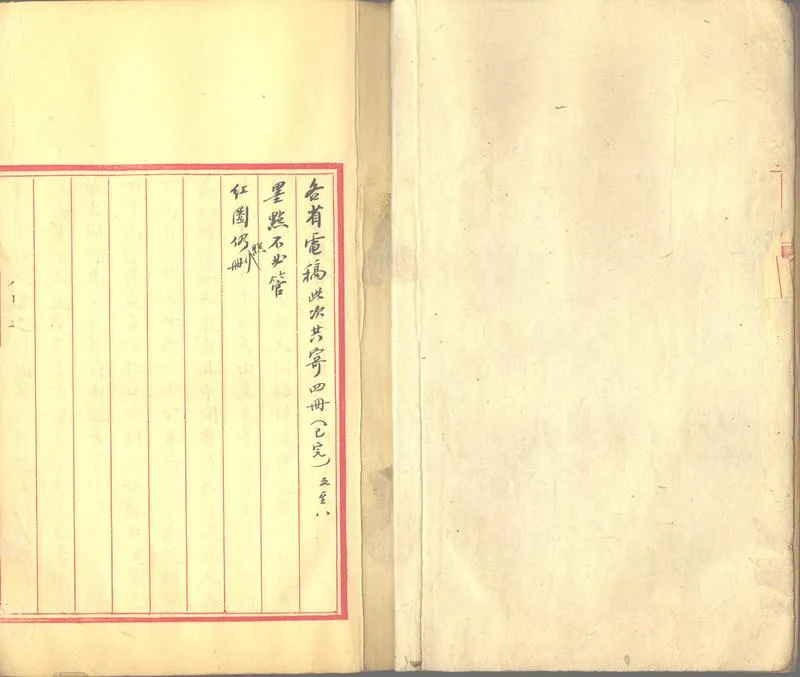 各省電稿此次共寄四冊（已完）五至八
墨點不必管
紅圈仍照刪